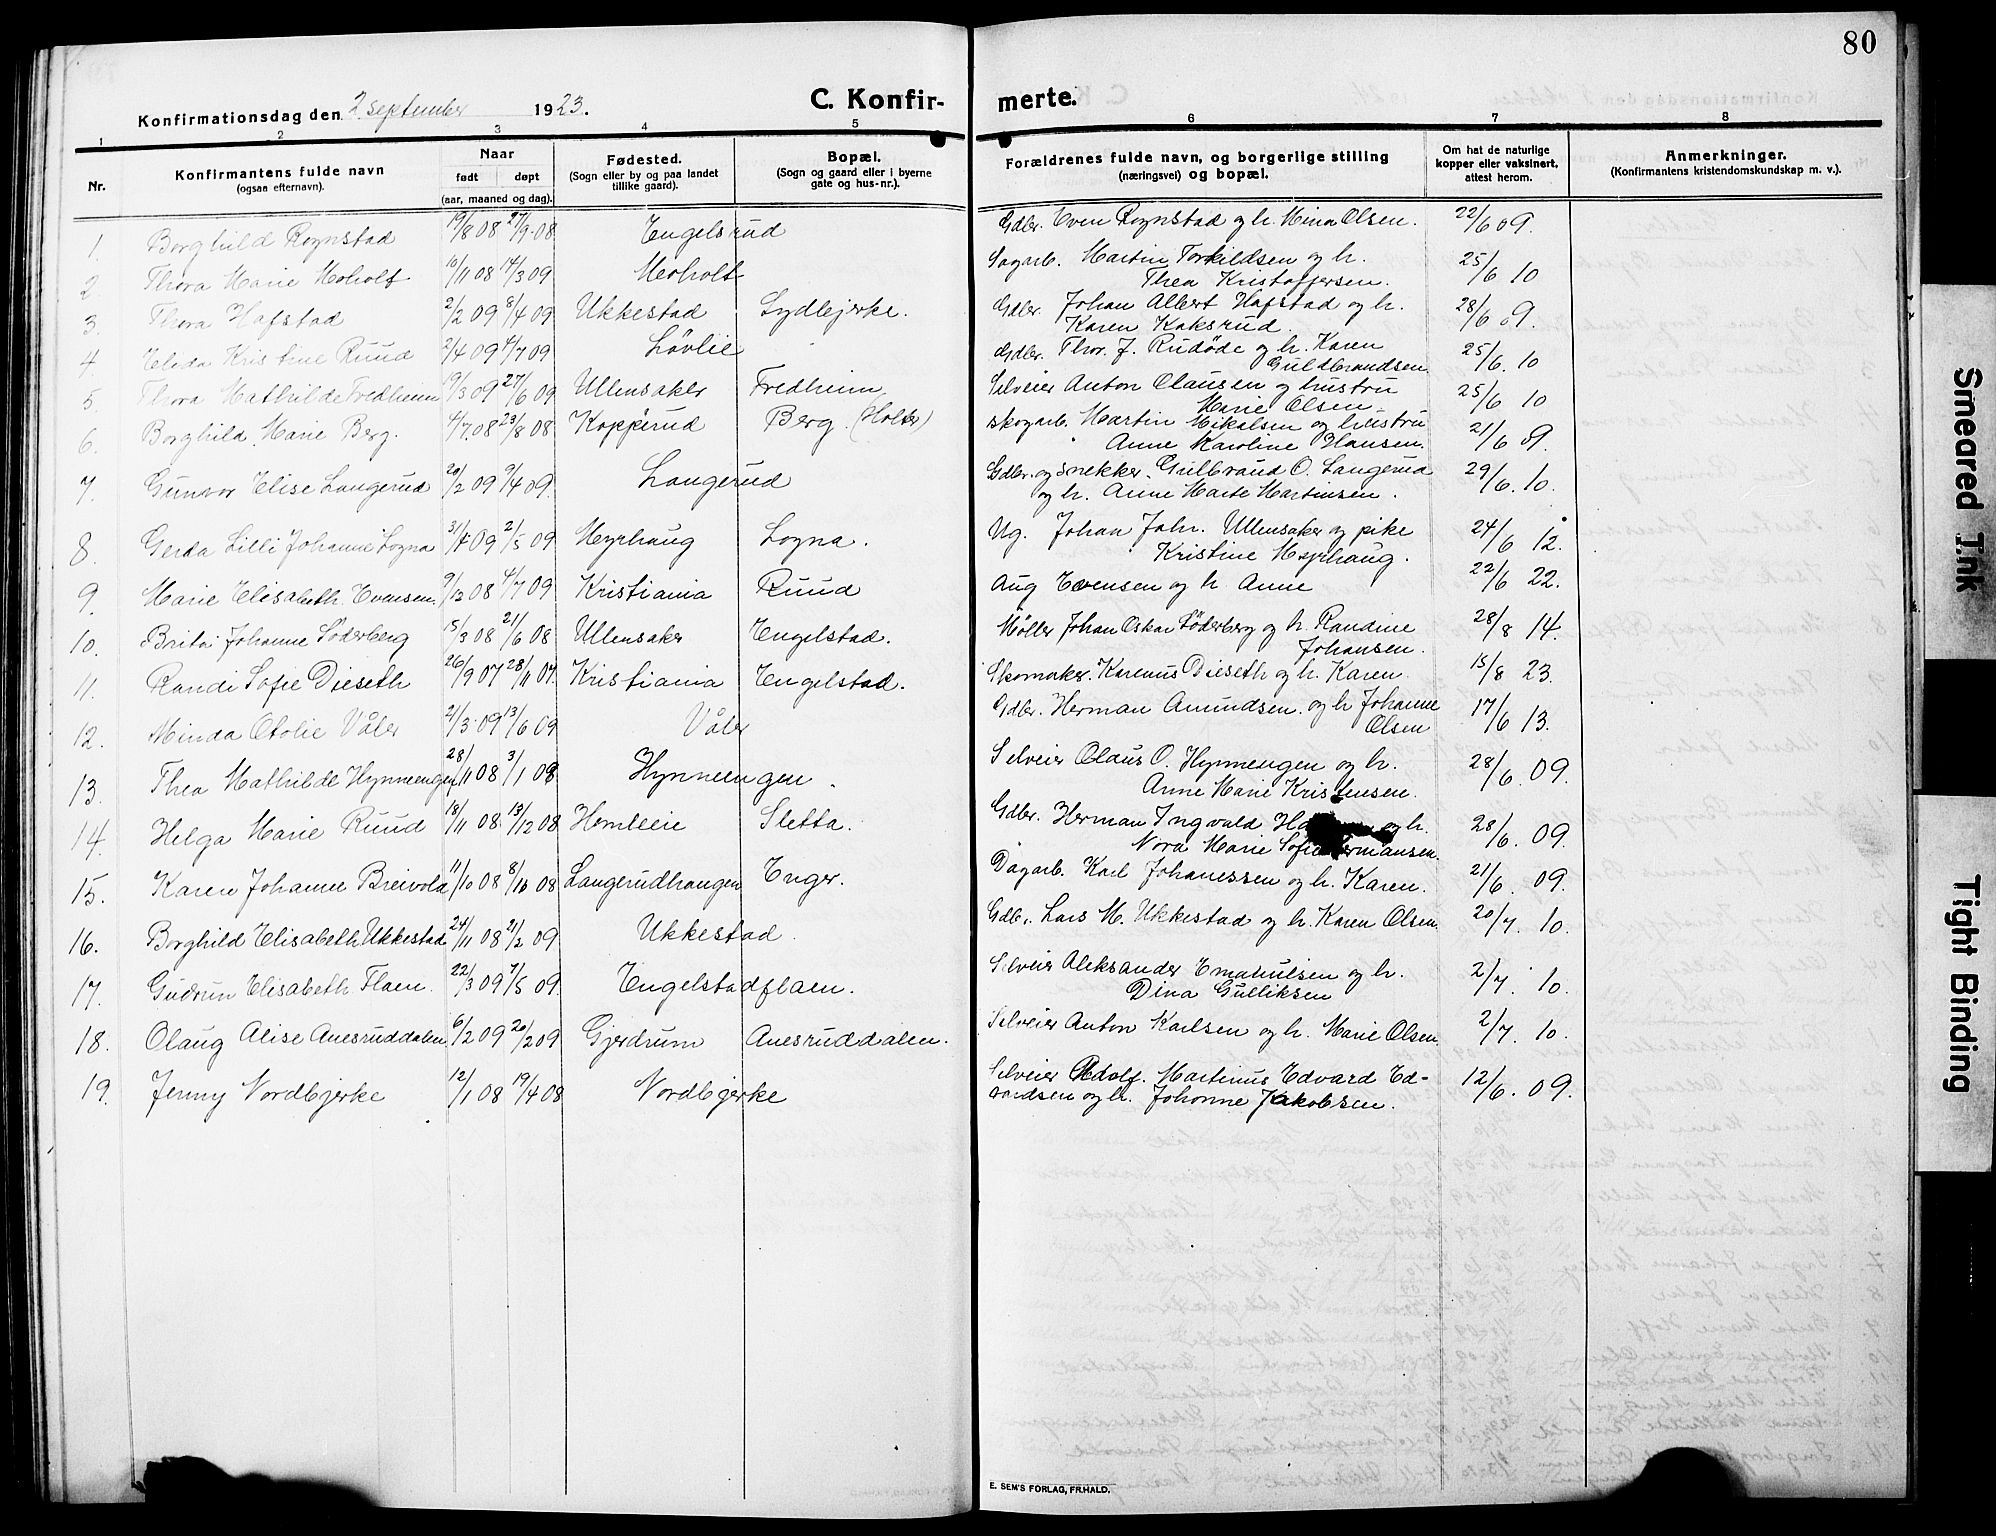 80
Konfirmationsdag den 2 september 1923.
C. Konfirmerte.
1 2 3 4 5 6 7 8
Nr.
Konfirmantens fulde navn
(ogsaa efternavn).
Naar
født døpt
(aar, maaned og dag).
Fødested.
(Sogn eller by og paa landet
tillike gaard).
Bopæl.
(Sogn og gaard eller i byerne
gate og hus-nr.).
Forældrenes fulde navn, og borgerlige stilling
(næringsvei) og bopæl.
Om hat de naturlige
kopper eller vaksinert,
attest herom.
Anmerkninger.
(Konfirmantens kristendomskundskap m. v.).
1. Borghild Rognstad 19/8 08 27/9-08 Engelsrud Gdbr. Even Rognstad og h. Mina Olsen. 22/6 09.
2 Thora Marie Moholt 10/11 08 14/3 09 Moholt Sagarb. Martin Torkildsen og h.
Thea Kristoffersen. 25/6 10
3. Thora Hafstad 2/2 09 8/4 09 Ukkestad Sydbjerke. Gdbr. Johan Albert Hafstad og h.
Karen Kaksrud. 28/6 09.
4 Elida Kristine Ruud 2/4 09 4/7 09 Løvlie Gdbr. Thor. J. Rudøde og h. Karen
Guldbrandsen 25/6. 10
5. Thora Mathilde Fredheim 9/3 09 27/6 09 Ullensaker Fredheim Selveier Anton Olausen og hustru
Marie Olsen 25/6 10
6. Borghild Marie Berg. 4/7 08 23/8 08 Kopperud Berg. (Holter) Skogarb. Martin Mikalsen og hustru
Anne Karoline Hansen. 21/6 09.
7. Gunvor Elise Langerud 20/2 09 9/4 09. Langerud Gdbr. og snekker. Gulbrand O. Langerud
og h. Anne Marte Martinsen. 29/6. 10.
8. Gerda Lilli Johanne Logna 3/4 09 2/5 09 Myrhaug Logna. Ug. Johan Johr. Ullensaker og pike
Kristine Myrhaug. 24/6 12.
9. Marie Elisabeth Evensen 9/12 08 4/7 09 Kristiania Ruud Aug Evensen og h. Anne 22/6 22.
10. Brita Johanne Söderberg 15/3 08 21/6 08 Ullensaker Engelstad. Møller Johan Oskar Söderberg og h. Randine
Johansen. 28/8 14.
11. Randi Sofie Dieseth 26/9 07 28/11 07. Kristiania Engelstad. Skomaker. Karenus Dieseth og h. Karen. 15/8 23.
12. Minda Otolie Våler 21/3 09 13/6 09 Våler Gdbr. Herman Amundsen og h Johanne
Olsen 17/6 13.
13. Thea Mathilde Hynnengen 28/11 08 3/1 09 Hynnengen. Selveier Olaus O. Hynnengen og h.
Anne Marie Kristensen. 28/6. 09.
14. Helga Marie Ruud 18/11 08 13/12 08 Homleie Sletta. Gdbr. Herman Ingvald og h.
Nora Marie Sofie 28/6. 09.
15. Karen Johanne Breivold 11/10 08 8/10 08 Langerudhaugen Enger. Dagarb. Karl Johanessen og h. Karen. 21/6. 09.
16. Borghild Elisabeth Ukkestad 24/11 08 21/2 09 Ukkestad. Gdbr. Lars M. Ukkestad og h. Karen Olsen. 20/7. 10.
17. Gudrun Elisabeth Flaen. 22/3 09 7/5 09. Engelstadflaen. Selveier Aleksander Emanulsen og h.
Dina Gulliksen 2/7. 10.
18. Olaug Alise Anesruddalen 6/2 09 20/2 09 Gjerdrum Anesruddalen. Selveier Anton Karlsen og h. Marie Olsen. 2/7. 10.
19. Jenny Nordbjerke 12/1 08 19/4 08 Nordbjerke Selveier Adolf. Martinus Edvard Ed-
vardsen og h. Johanne Jakobsen. 12/6. 09.
E. SEM'S FORLAG, FR.HALD.
Smeared Ink
Tight Binding